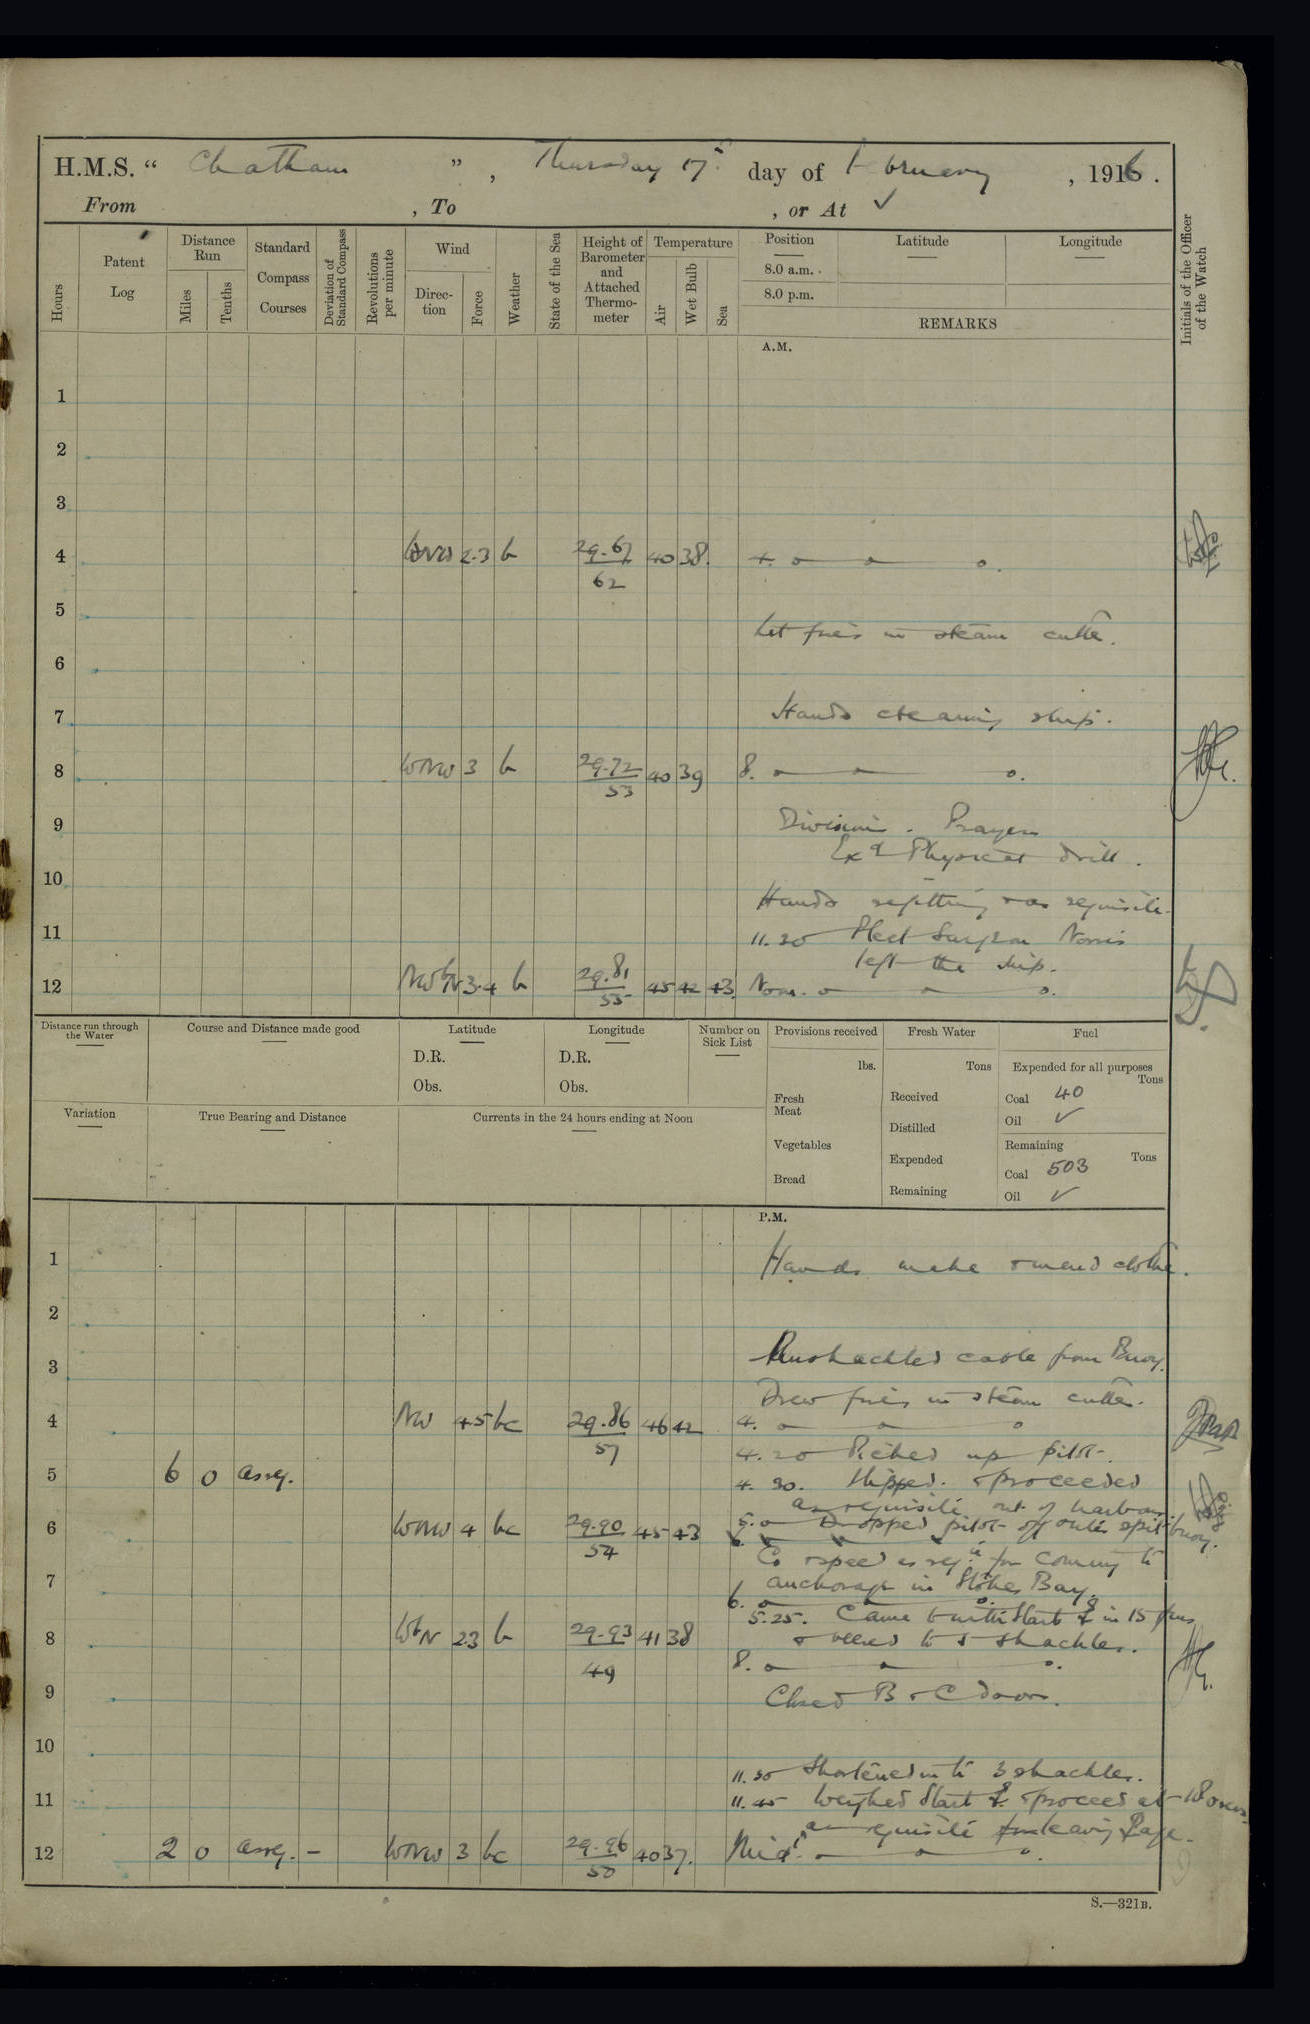 H.M.S. " Chatham ", Thursday 17th day of February, 1916.
From , To , or At ✓
Hours
Patent Log
Distance Run
Miles
Tenths
Standard Compass Courses
Deviation of Standard Compass
Revolutions per minute
Wind
Direction
Force
Weather
State of the Sea
Height of Barometer and Attached Thermometer
Temperature
Air
Wet Bulb
Sea
Position
8.0 a.m.
8.0 p.m.
Latitude
Longitude
REMARKS
Initials of the Officer of the Watch
A.M.
1
2
3
4 WNW 2.3 b 29.67 40 38. 4.
62
5
Let fires in steam cutter.
6
7 Hands cleaning ship.
8 WNW 3 b 29.72 40 39 8.
53
9 Divisions. Prayers
Exd Physical drill.
10
Hands refitting & as requisite.
11 11.20 Fleet Surgeon Norris
left the ship.
12 NWbN 3.4 b 29.81 45 42 43 Noon.
55
Distance run through the Water
Course and Distance made good
Latitude
D.R.
Obs.
Longitude
D.R.
Obs.
Number on Sick List
Provisions received
lbs.
Fresh Meat
Vegetables
Bread
Fresh Water
Tons
Received
Distilled
Expended
Remaining
Fuel
Expended for all purposes
Tons
Coal 40
Oil ✓
Remaining
Tons
Coal 503
Oil ✓
Variation
True Bearing and Distance
Currents in the 24 hours ending at Noon
P.M.
1 Hands make & mend clothes.
2
3 Unshackled cable from Buoy.
Drew fires in steam cutter.
4 NW 4.5 bc 29.86 46 42 4.
57
4.20 Picked up pilot.
5 6 0 assq. 4.30. Slipped. & proceeded
as requisite out of harbour
6 WNW 4 bc 29.90 45 43 5.0 Dropped pilot off outer spit buoy.
54
Co & speed as reqte for coming to
7 anchorage in Stokes Bay.
6.
5.25. Came to with Starb in 15 fms
8 WbN 2.3 b 29.93 41 38 & veered to 5 shackles.
49
8.
9 Closed B & C doors.
10
11.30 Shortened in to 3 shackles.
11 11.45 Weighed Starb & proceed at 18
as requisite leaving
12 2 0 assq. – WNW 3 bc 29.96 40 37. Midt.
50
S.—321B.